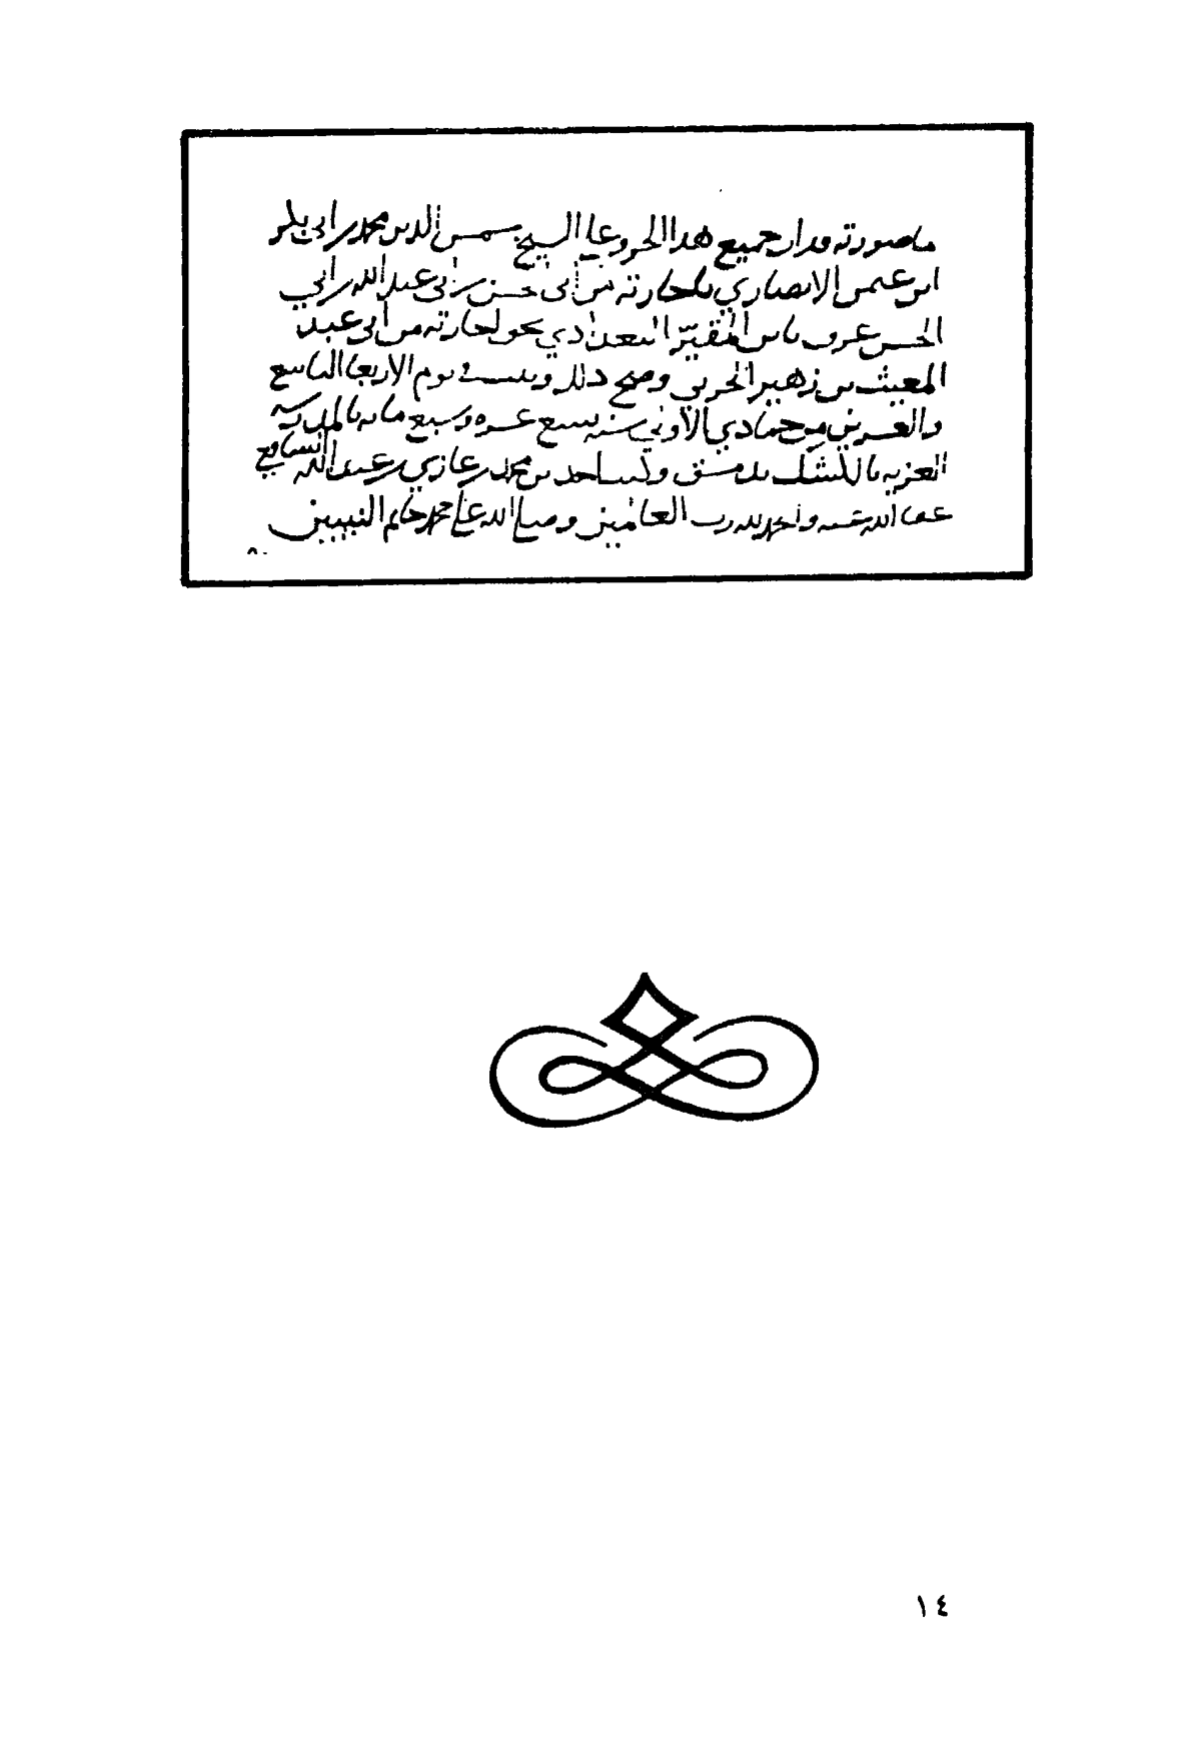 ما صورته قرات جميع هذا الجزو على الشيخ شمس الدين محمد بن ابي بكر
ابن عثمن الانصاري باجازته من ابي حسن بن ابي عبد الله بن ابي
الحسن عرف بابن المقيّر البغدادي بحق اجازته من ابي عبد
المغيث بن زهير الحربي وصح ذلك وثبت في يوم الاربعا التاسع
والعشرين من جمادي الاولى سنه سبع عشره وسبع مايه بالمدرسه
العزيه بالكشك بدمشق وكتب احمد بن محمد بن غازي بن عبد الله الشافعي
عفا الله عنه والحمد لله رب العالمين وصلى الله على محمد خاتم النبيين
١٤